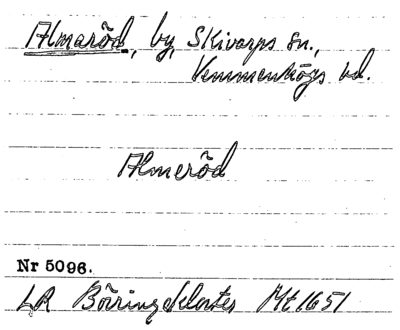 Almaröd, by, Skivarps sn.,
Vemmenhögs hd.
Almeröd
Nr 5096.
LR Börringekloster Mt 1651